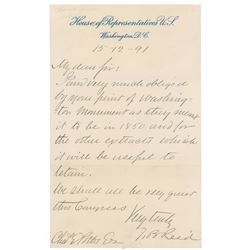 House of Representatives U.S.
Washington, D.C.
15-12-91
My dear Sir:
I am very much obliged
by your print of Washing-
ton Monument as they meant
it to be in 1850 and for
the other extracts which
it will be useful to
retain.
We shall all be very quiet
this Congress
Very truly
T B Reed
Chas Potts Esq